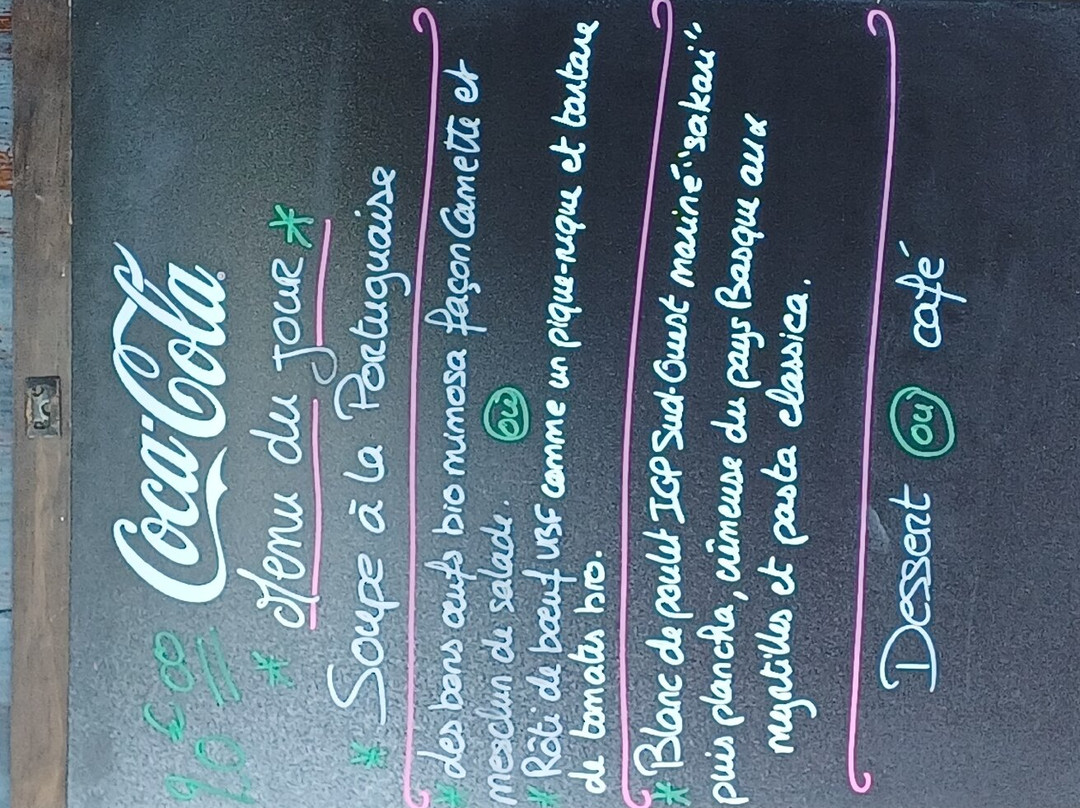 Coca-Cola
Menu du jour
* Soupe à la Portuguaise
* des bons œufs bio mimosa façon Camette et
mesclun de salade.
ou
* Rôti de bœuf VBF comme un pique-nique et tartare
de tomates bio.
* Blanc de poulet IGP Sud-Ouest mariné "sakari"
puis plancha, crèmeuse du pays Basque aux
myrtilles et pasta classica.
Dessert ou café